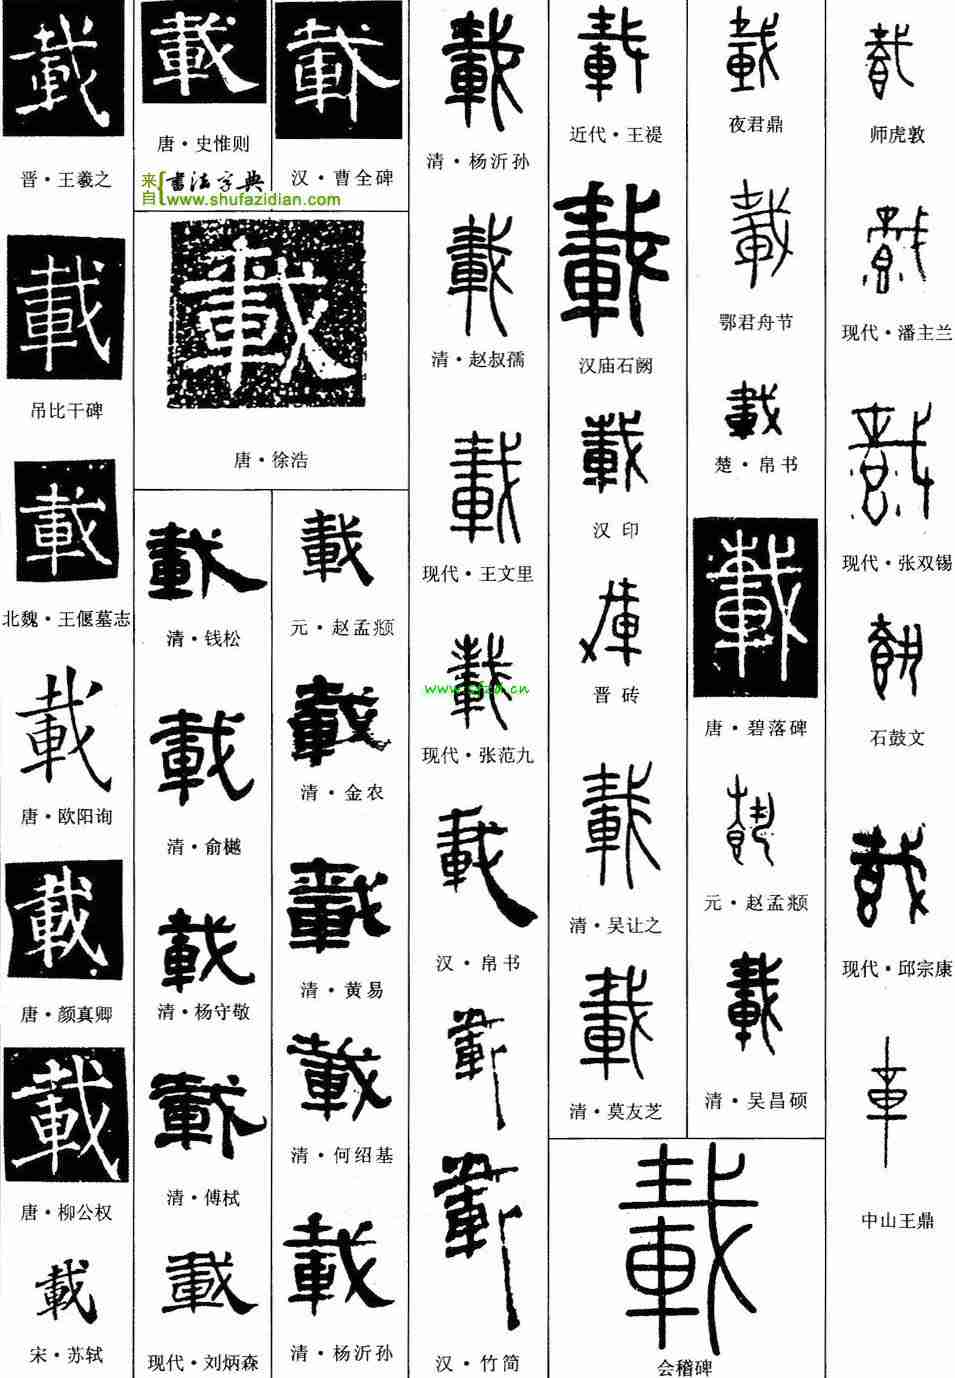 載
晋·王羲之
載
吊比干碑
載
北魏·王偃墓志
載
唐·欧阳询
載
唐·颜真卿
載
唐·柳公权
載
宋·苏轼
載
唐·史惟则
来自{书法字典
www.shufazidian.com
載
汉·曹全碑
載
唐·徐浩
載
清·钱松
載
清·俞樾
載
清·杨守敬
載
清·傅栻
載
现代·刘炳森
載
元·赵孟頫
載
清·金农
載
清·黄易
載
清·何绍基
載
清·杨沂孙
載
清·杨沂孙
載
清·赵叔孺
載
现代·王文里
載
www.sfzd.cn
现代·张范九
載
汉·帛书
載
載
汉·竹简
載
近代·王禔
載
汉庙石阙
載
汉印
載
晋砖
載
清·吴让之
載
清·莫友芝
載
会稽碑
載
夜君鼎
載
鄂君舟节
載
楚·帛书
載
唐·碧落碑
載
元·赵孟頫
載
清·吴昌硕
載
师虎敦
載
现代·潘主兰
載
现代·张双锡
載
石鼓文
載
现代·邱宗康
車
中山王鼎